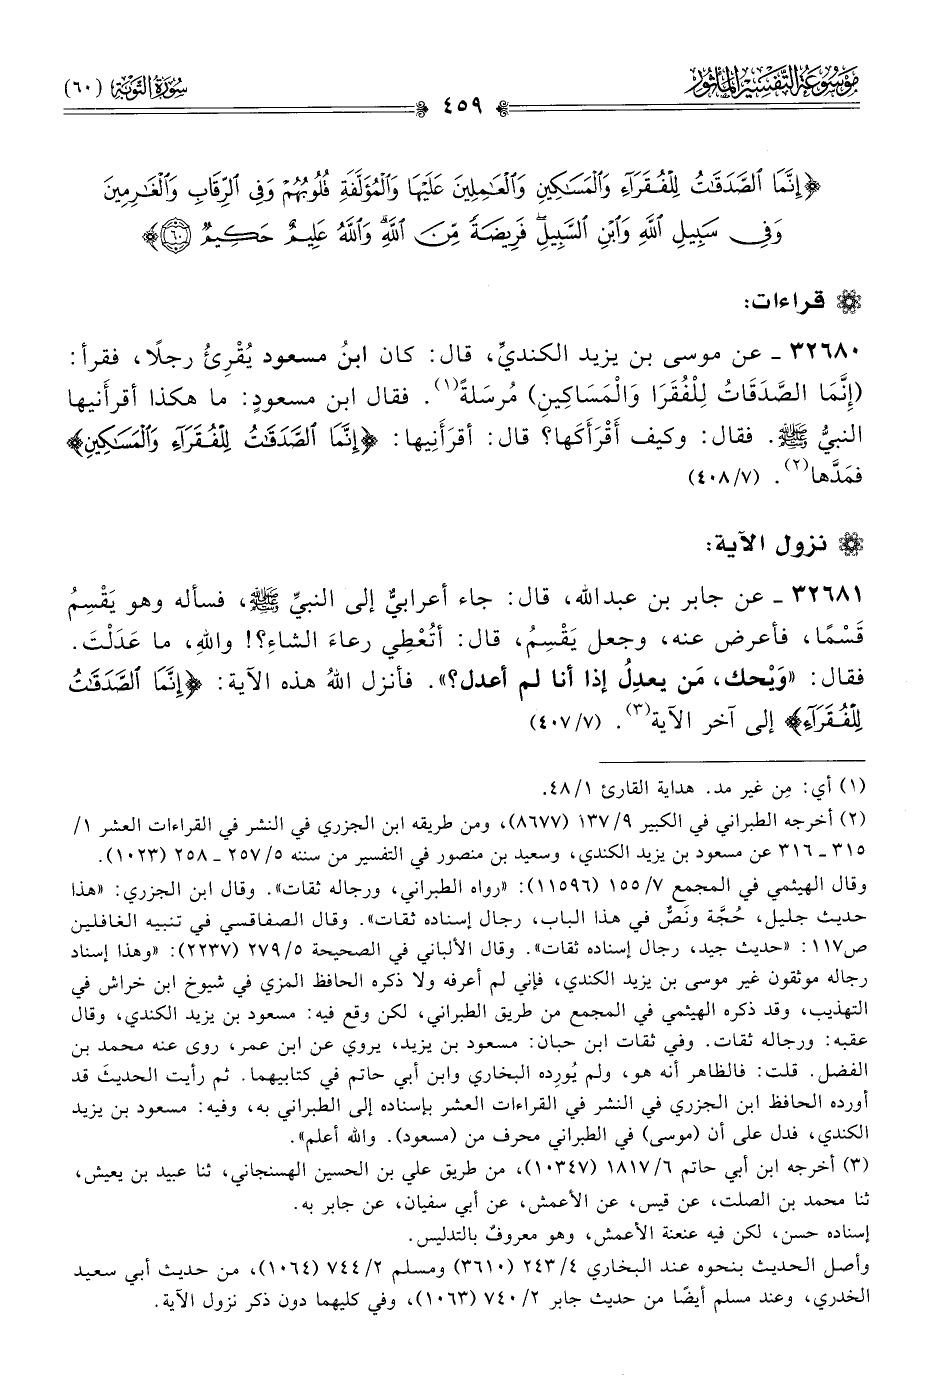 موسوعة التفسير المأثور
٤٥٩
سورة التوبة (٦٠)
﴿إِنَّمَا ٱلصَّدَقَٰتُ لِلْفُقَرَآءِ وَٱلْمَسَٰكِينِ وَٱلْعَٰمِلِينَ عَلَيْهَا وَٱلْمُؤَلَّفَةِ قُلُوبُهُمْ وَفِى ٱلرِّقَابِ وَٱلْغَٰرِمِينَ
وَفِى سَبِيلِ ٱللَّهِ وَٱبْنِ ٱلسَّبِيلِۖ فَرِيضَةً مِّنَ ٱللَّهِۗ وَٱللَّهُ عَلِيمٌ حَكِيمٌ ۝٦٠﴾
قراءات:
٣٢٦٨٠ ـ عن موسى بن يزيد الكنديِّ، قال: كان ابنُ مسعود يُقْرِئُ رجلًا، فقرأ:
(إِنَّمَا الصَّدَقَاتُ لِلْفُقَرَا وَالْمَسَاكِينِ) مُرسَلةً(١). فقال ابن مسعودٍ: ما هكذا أقرأَنيها
النبيُّ ﷺ. فقال: وكيف أَقْرَأَكها؟ قال: أقرَأَنِيها: ﴿إِنَّمَا ٱلصَّدَقَٰتُ لِلْفُقَرَآءِ وَٱلْمَسَٰكِينِ﴾
فمَدَّها(٢). (٤٠٨/٧)
نزول الآية:
٣٢٦٨١ ـ عن جابر بن عبدالله، قال: جاء أعرابيٌّ إلى النبيِّ ﷺ، فسأله وهو يَقْسِمُ
قَسْمًا، فأعرض عنه، وجعل يَقْسِمُ، قال: أتُعْطِي رعاءَ الشاءِ؟! واللهِ، ما عَدَلْتَ.
فقال: «وَيْحك، مَن يعدِلُ إذا أنا لم أعدل؟». فأنزل اللهُ هذه الآية: ﴿إِنَّمَا ٱلصَّدَقَٰتُ
لِلْفُقَرَآءِ﴾ إلى آخر الآية(٣). (٤٠٧/٧)
(١) أي: مِن غير مد. هداية القارئ ٤٨/١.
(٢) أخرجه الطبراني في الكبير ١٣٧/٩ (٨٦٧٧)، ومن طريقه ابن الجزري في النشر في القراءات العشر ١/
٣١٥ ـ ٣١٦ عن مسعود بن يزيد الكندي، وسعيد بن منصور في التفسير من سننه ٢٥٧/٥ ـ ٢٥٨ (١٠٢٣).
وقال الهيثمي في المجمع ١٥٥/٧ (١١٥٩٦): «رواه الطبراني، ورجاله ثقات». وقال ابن الجزري: «هذا
حديث جليل، حُجَّة ونَصٌّ في هذا الباب، رجال إسناده ثقات». وقال الصفاقسي في تنبيه الغافلين
ص١١٧: «حديث جيد، رجال إسناده ثقات». وقال الألباني في الصحيحة ٢٧٩/٥ (٢٢٣٧): «وهذا إسناد
رجاله موثقون غير موسى بن يزيد الكندي، فإني لم أعرفه ولا ذكره الحافظ المزي في شيوخ ابن خراش في
التهذيب، وقد ذكره الهيثمي في المجمع من طريق الطبراني، لكن وقع فيه: مسعود بن يزيد الكندي، وقال
عقبه: ورجاله ثقات. وفي ثقات ابن حبان: مسعود بن يزيد، يروي عن ابن عمر، روى عنه محمد بن
الفضل. قلت: فالظاهر أنه هو، ولم يُورِده البخاري وابن أبي حاتم في كتابيهما. ثم رأيت الحديثَ قد
أورده الحافظ ابن الجزري في النشر في القراءات العشر بإسناده إلى الطبراني به، وفيه: مسعود بن يزيد
الكندي، فدل على أن (موسى) في الطبراني محرف من (مسعود). والله أعلم».
(٣) أخرجه ابن أبي حاتم ١٨١٧/٦ (١٠٣٤٧)، من طريق علي بن الحسين الهسنجاني، ثنا عبيد بن يعيش،
ثنا محمد بن الصلت، عن قيس، عن الأعمش، عن أبي سفيان، عن جابر به.
إسناده حسن، لكن فيه عنعنة الأعمش، وهو معروفٌ بالتدليس.
وأصل الحديث بنحوه عند البخاري ٢٤٣/٤ (٣٦١٠) ومسلم ٧٤٤/٢ (١٠٦٤)، من حديث أبي سعيد
الخدري، وعند مسلم أيضًا من حديث جابر ٧٤٠/٢ (١٠٦٣)، وفي كليهما دون ذكر نزول الآية.